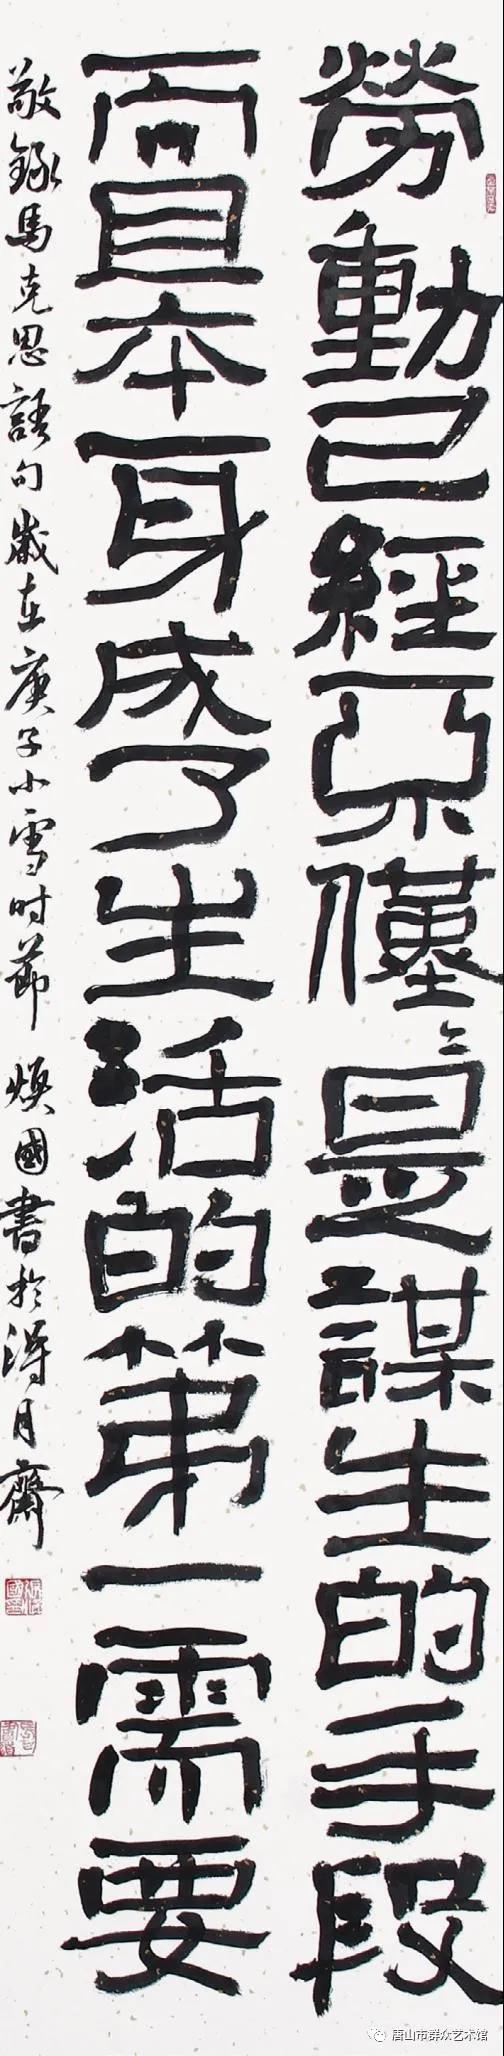 勞動已經不僅〻是謀生的手段
而且本身成了生活的第一需要
敬錄馬克思語句歲在庚子小雪时節 煥國書於得月齋
唐山市群众艺术馆